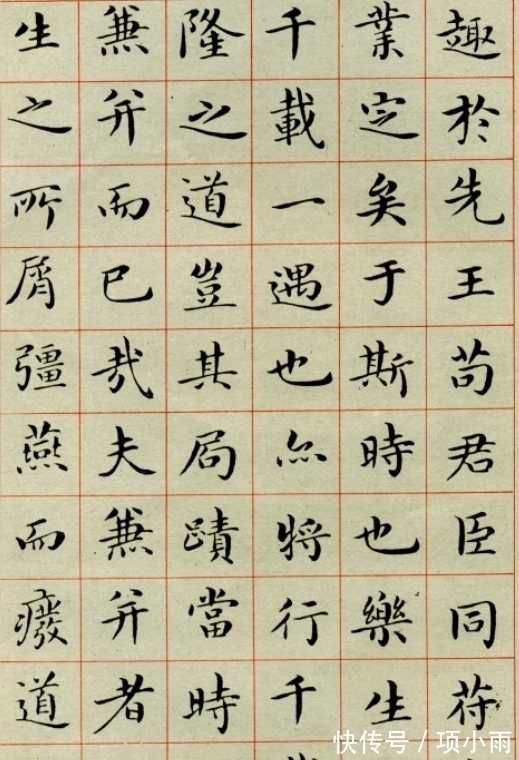 趣於先王苟君臣同苻
業定矣于斯時也樂生
千載一遇也亦將行千
隆之道豈其局蹟當時
兼并而已哉夫兼并者
生之所屑彊燕而癈道
快传号 / 项小雨